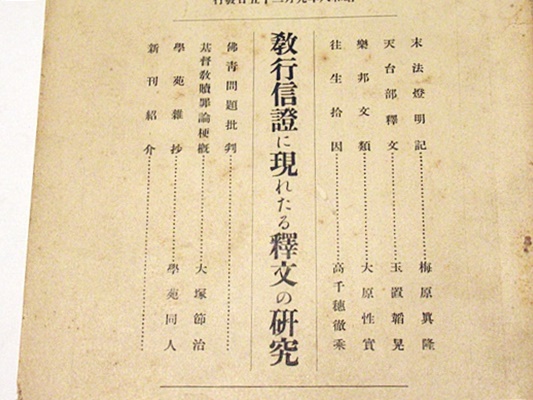 末法燈明記……………梅原眞隆
天台部釋文……………玉置韜晃
樂邦文類……………大原性實
往生拾因……………高千穗徹乘
教行信證に現れたる釋文の硏究
佛靑問題批判……………
基督敎贖罪論梗槪……………大塚節治
學苑雜抄……………學苑同人
新刊紹介……………